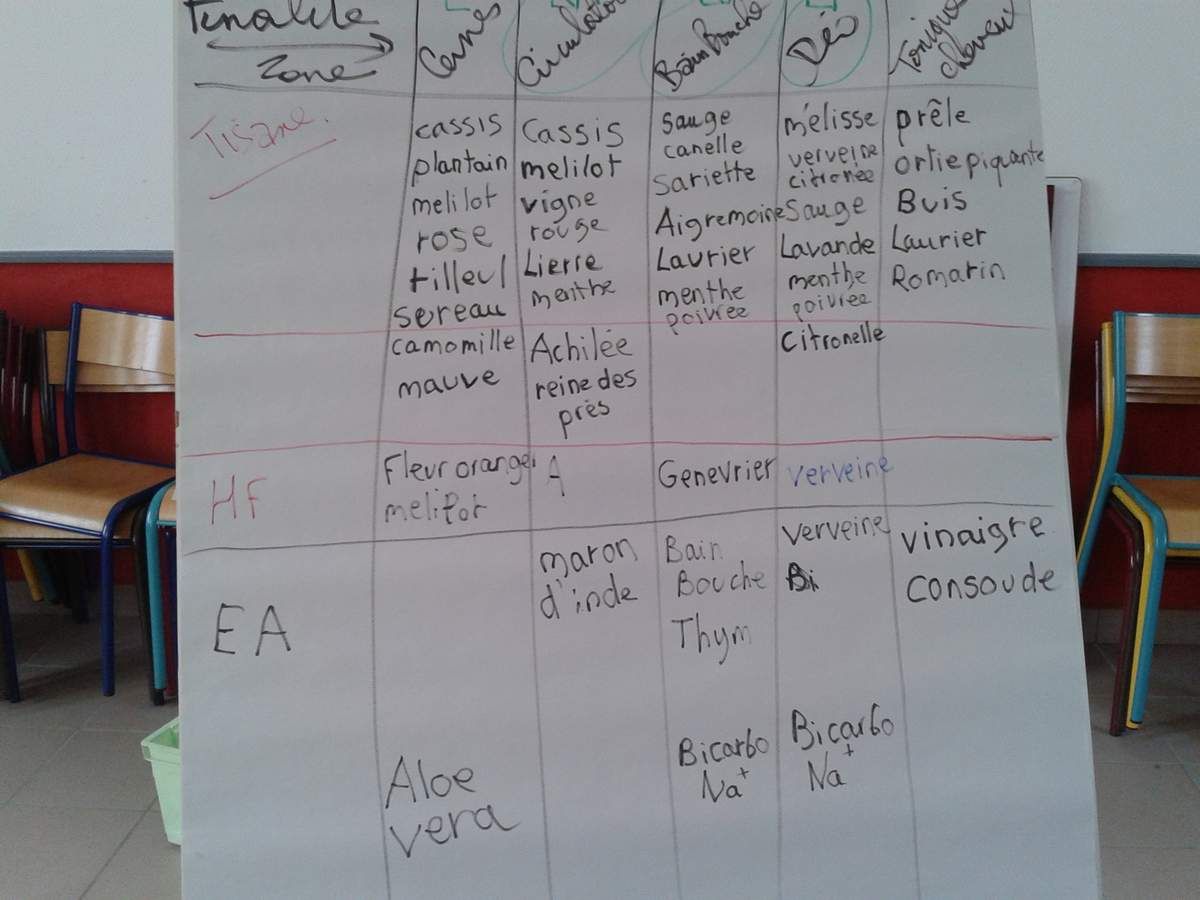 Finalité
Zone
Cernes
Circulation
Bain Bouche
Déo
Tonique
cheveux
Tisane.
cassis
plantain
melilot
rose
tilleul
sureau
camomille
mauve
Cassis
melilot
vigne
rouge
Lierre
menthe
Achilée
reine des
près
Sauge
canelle
Sariette
Aigremoine
Laurier
menthe
poivrée
mélisse
verveine
citronée
Sauge
Lavande
menthe
poivrée
Citronelle
prêle
ortie piquante
Buis
Laurier
Romarin
HF
Fleur oranger
melilot
A
Genevrier
verveine
EA
Aloe
vera
maron
d'inde
Bain
Bouche
Thym
Bicarbo
Na+
verveine
Bi
Bicarbo
Na+
vinaigre
Consoude